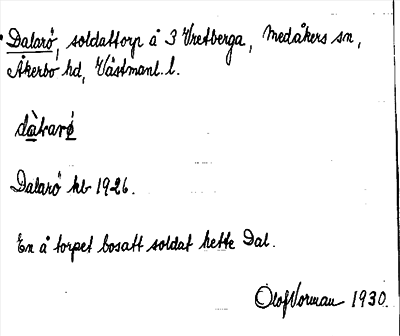 Dalarö, soldattorp å 3 Vretberga, Medåkers sn,
Åkerbo hd, Västmanl. l.
Dalarö hb 1926.
En å torpet bosatt soldat hette Dal.
Olof Vorman 1930.